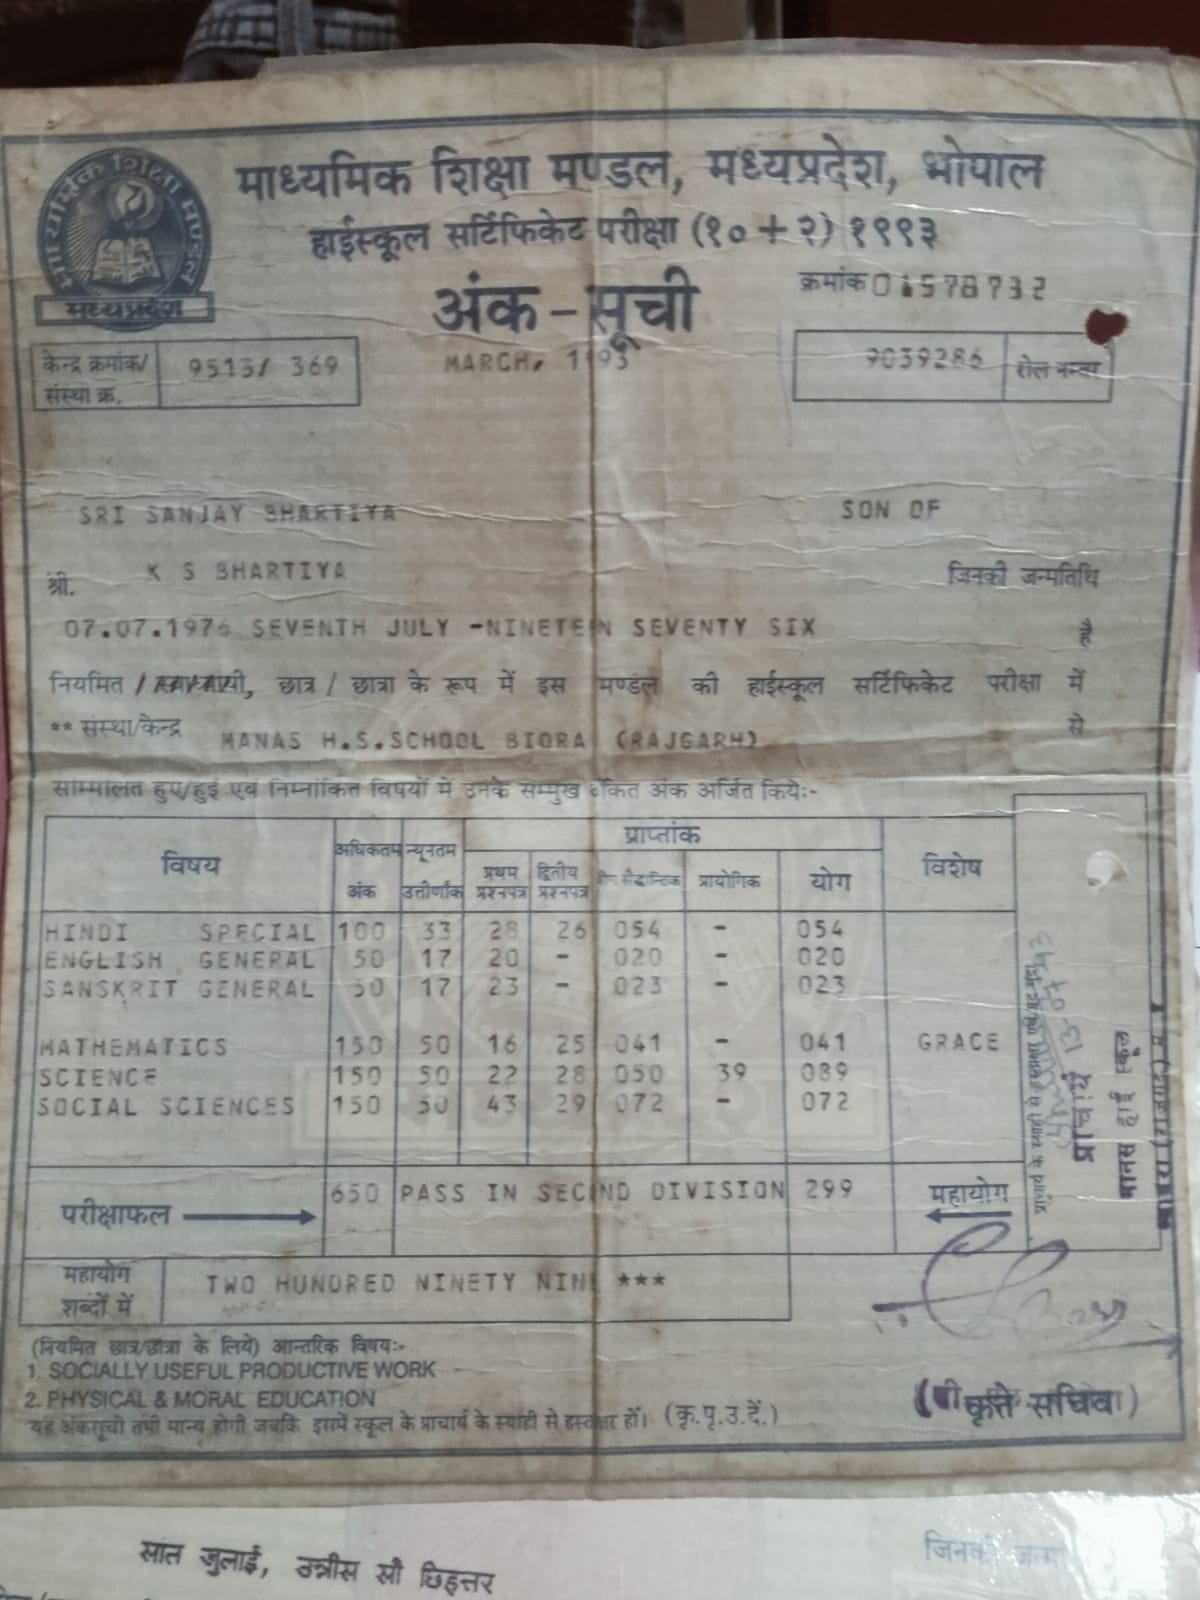 माध्यमिक शिक्षा मण्डल
मध्यप्रदेश
माध्यमिक शिक्षा मण्डल, मध्यप्रदेश, भोपाल
हाईस्कूल सर्टिफिकेट परीक्षा (१०+२) १९९३
अंक-सूची
क्रमांक 01578732
केन्द्र क्रमांक/ संस्था क्र. 9513/ 369
MARCH, 1993
9039286 रोल नम्बर
SRI SANJAY BHARTIYA SON OF
श्री. K S BHARTIYA जिनकी जन्मतिथि
07.07.1976 SEVENTH JULY -NINETEEN SEVENTY SIX है
नियमित / छात्र / छात्रा के रूप में इस मण्डल की हाईस्कूल सर्टिफिकेट परीक्षा में
** संस्था/केन्द्र MANAS H.S.SCHOOL BIORA (RAJGARH) से
सम्मिलित हुए/हुई एवं निम्नांकित विषयों में उनके सम्मुख अंकित अंक अर्जित किये:-
विषय अधिकतम अंक न्यूनतम उत्तीर्णांक प्राप्तांक विशेष
प्रथम प्रश्नपत्र द्वितीय प्रश्नपत्र सैद्धान्तिक प्रायोगिक योग
HINDI SPECIAL 100 33 28 26 054 - 054
ENGLISH GENERAL 50 17 20 - 020 - 020
SANSKRIT GENERAL 50 17 23 - 023 - 023
MATHEMATICS 150 50 16 25 041 - 041 GRACE
SCIENCE 150 50 22 28 050 39 089
SOCIAL SCIENCES 150 50 43 29 072 - 072
परीक्षाफल 650 PASS IN SECOND DIVISION 299 महायोग
महायोग शब्दों में TWO HUNDRED NINETY NINE ***
(नियमित छात्र/छात्रा के लिये) आन्तरिक विषय:-
1. SOCIALLY USEFUL PRODUCTIVE WORK
2. PHYSICAL & MORAL EDUCATION
यह अंकसूची तभी मान्य होगी जबकि इसमें स्कूल के प्राचार्य के स्याही से हस्ताक्षर हों। (कृ.पृ.उ.दें.)
कृते सचिव
प्राचार्य के स्याही से हस्ताक्षर
13-07-93
प्राचार्य
मानस हाई स्कूल
सात जुलाई, उन्नीस सौ छिहत्तर
जिनकी जन्म